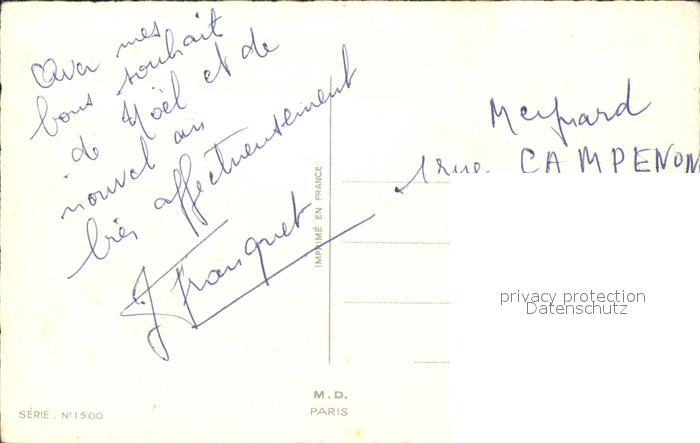 Avec mes
bons souhait
de Noël et de
nouvel an
très affectueusement
J Franquet
Meynard
1 rue CAMPENON
IMPRIMÉ EN FRANCE
privacy protection
Datenschutz
M.D.
PARIS
SÉRIE. N° 1500